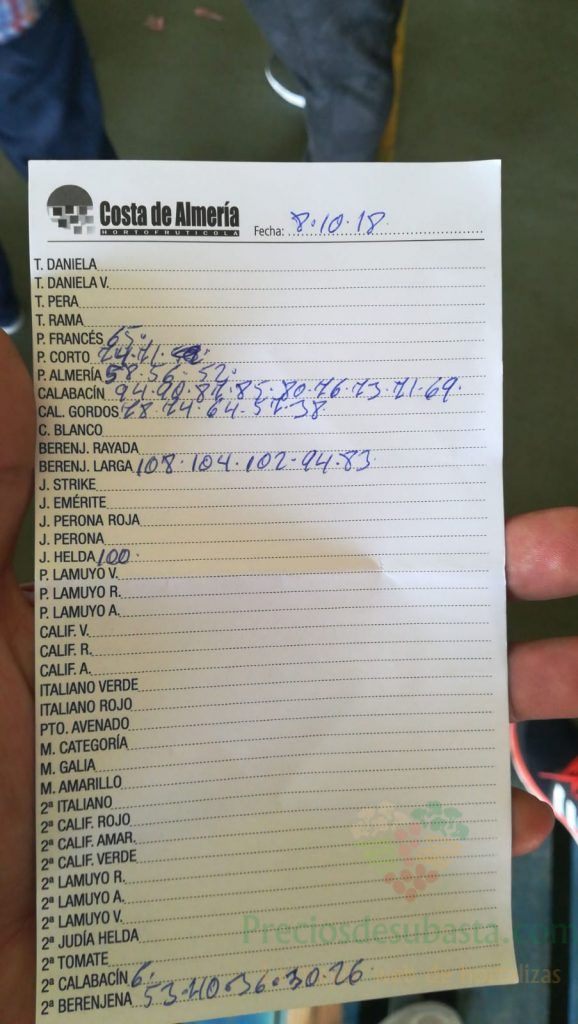 Costa de Almería
HORTOFRUTICOLA
Fecha: 8·10·18
T. DANIELA
T. DANIELA V.
T. PERA
T. RAMA
P. FRANCÉS 65·
P. CORTO 74·71·
P. ALMERÍA 58·56·52·
CALABACÍN 94·90·87·85·80·76·73·71·69·
CAL. GORDOS 78·74·64·57·38
C. BLANCO
BERENJ. RAYADA
BERENJ. LARGA 108·104·102·94·83
J. STRIKE
J. EMÉRITE
J. PERONA ROJA
J. PERONA
J. HELDA 100·
P. LAMUYO V.
P. LAMUYO R.
P. LAMUYO A.
CALIF. V.
CALIF. R.
CALIF. A.
ITALIANO VERDE
ITALIANO ROJO
PTO. AVENADO
M. CATEGORÍA
M. GALIA
M. AMARILLO
2ª ITALIANO
2ª CALIF. ROJO
2ª CALIF. AMAR.
2ª CALIF. VERDE
2ª LAMUYO R.
2ª LAMUYO A.
2ª LAMUYO V.
2ª JUDÍA HELDA
2ª TOMATE
2ª CALABACÍN 6·
2ª BERENJENA 53·40·36·30·26·
Preciosdesubasta.com